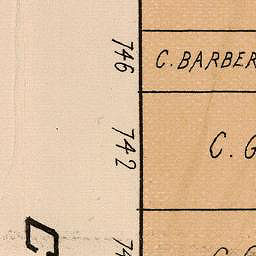 746
C. BARBER
742
C. G